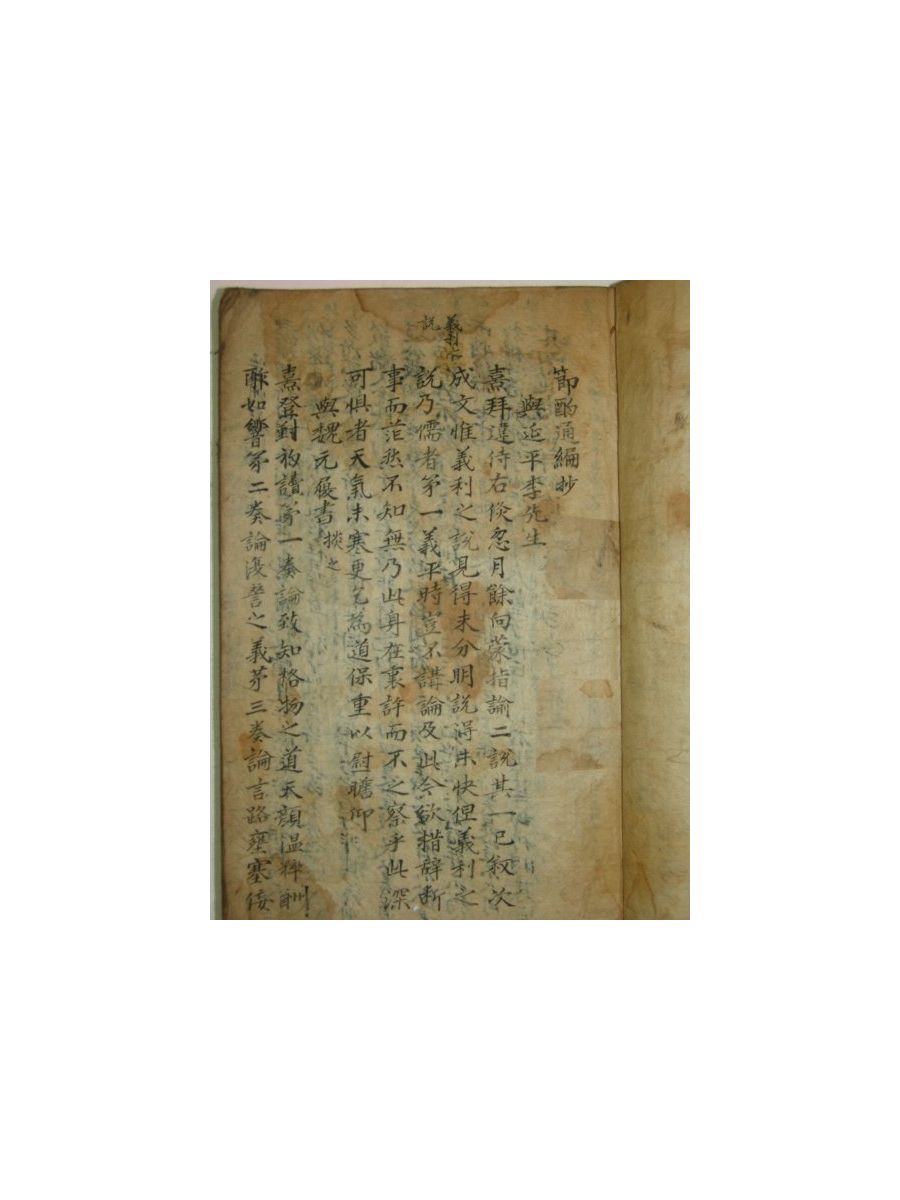 節酌通編抄
與延平李先生
義利
說
熹拜違侍右倐忽月餘向蒙指諭二說其一已叙次
成文惟義利之說見得未分明說得未快但義利之
說乃儒者第一義平時豈不講論及此今欲措辭斷
事而茫然不知無乃此身在裏許而不之察乎此深
可懼者天氣未寒更乞爲道保重以慰瞻仰
與魏元履書 掞之
熹登對初讀第一奏論致知格物之道天顏溫粹酬
酢如響第二奏論復讐之義第三奏論言路壅塞佞